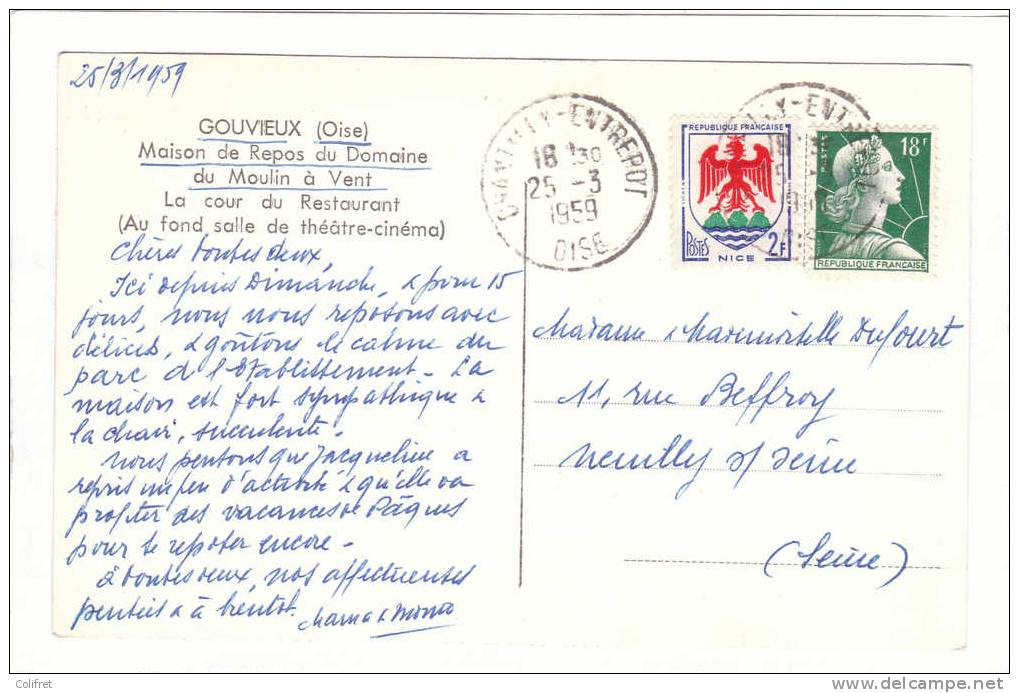 25/3/1959
GOUVIEUX (Oise)
Maison de Repos du Domaine
du Moulin à Vent
La cour du Restaurant
(Au fond salle de théâtre-cinéma)
Chères toutes deux,
Ici depuis Dimanche, & pour 15
jours, nous nous reposons avec
délices, & goûtons le calme du
parc de l'Etablissement - La
maison est fort sympathique &
la chair, succulente.
Nous pensons que Jacqueline a
repris un peu d'activité & qu'elle va
profiter des vacances de Pâques
pour se reposer encore -
à toutes deux, nos affectueuses
pensées & à bientôt.
CHANTILLY-ENTREPOT
18 H 30
25 -3
1959
OISE
REPUBLIQUE FRANÇAISE
POSTES
2F
NICE
18F
POSTES
REPUBLIQUE FRANÇAISE
Madame & Mademoiselle Dufourt
11, rue Beffroy
Neuilly s/ Seine
(Seine)
Colifret
delcampe.net